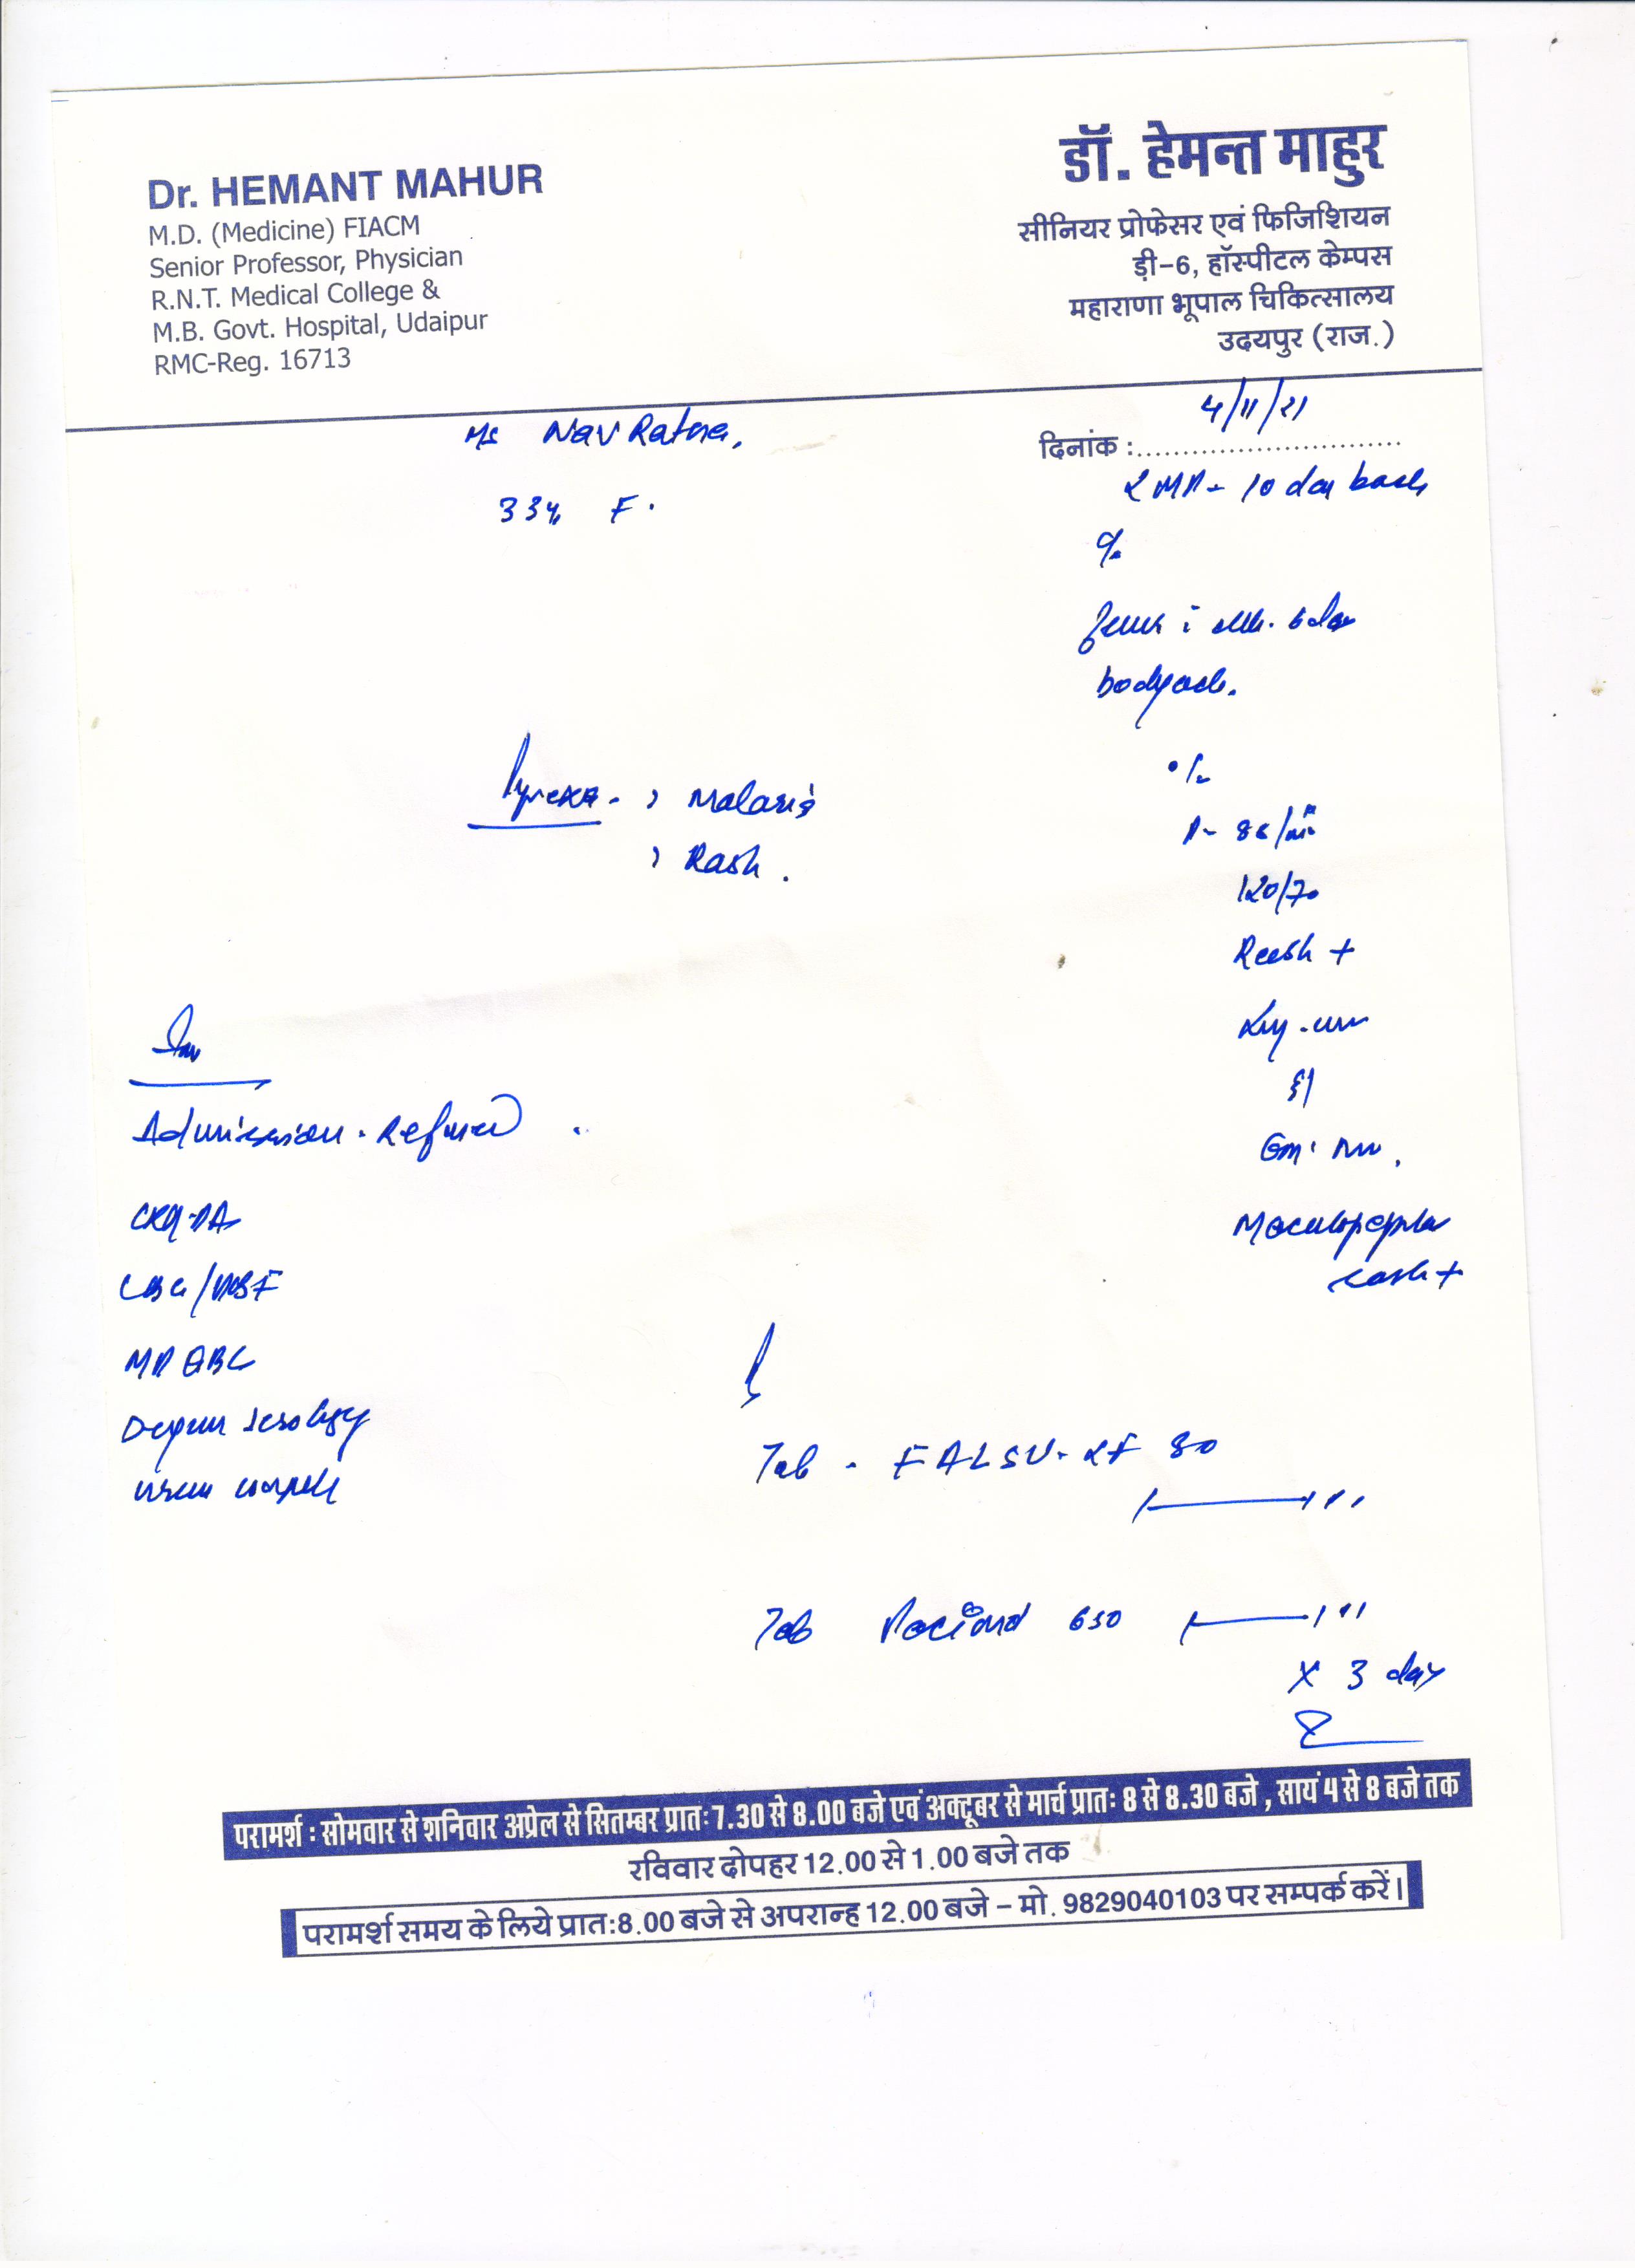 Dr. HEMANT MAHUR
M.D. (Medicine) FIACM
Senior Professor, Physician
R.N.T. Medical College &
M.B. Govt. Hospital, Udaipur
RMC-Reg. 16713
डॉ. हेमन्त माहुर
सीनियर प्रोफेसर एवं फिजिशियन
ड़ी-6, हॉस्पीटल केम्पस
महाराणा भूपाल चिकित्सालय
उदयपुर (राज.)
Ms NavRatna.
दिनांक : 4/11/21
LMP - 10 day back
33y F.
c/o
bodyache.
Pyrexia - Malaria
Rash.
o/e
120/70
Rash +
Inv
Admission Refused
Maculopapular
rash +
CXR-PA
CBC/PBF
MP QBC
Dengue serology
urine complete
Tab - FALSU-LF 80
Tab 650
x 3 day
परामर्श : सोमवार से शनिवार अप्रेल से सितम्बर प्रातः 7.30 से 8.00 बजे एवं अक्टूबर से मार्च प्रातः 8 से 8.30 बजे, सायं 4 से 8 बजे तक
रविवार दोपहर 12.00 से 1.00 बजे तक
परामर्श समय के लिये प्रात:8.00 बजे से अपरान्ह 12.00 बजे - मो. 9829040103 पर सम्पर्क करें।